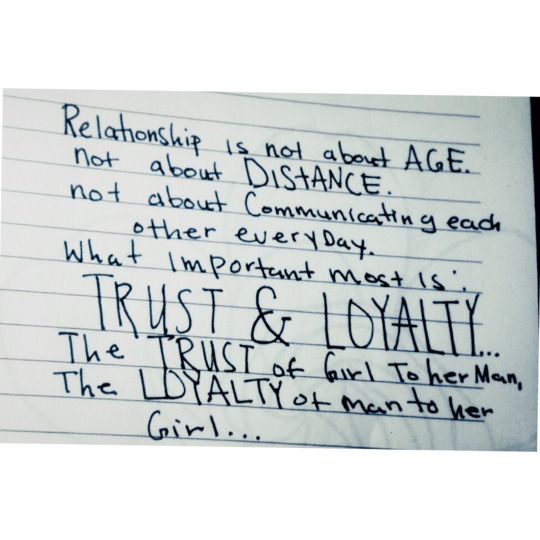 Relationship is not about AGE.
not about DISTANCE.
not about Communicating each
other everyDay.
What Important most Is :
TRUST & LOYALTY...
The TRUST of Girl To her Man,
The LOYALTY of man to her
Girl...